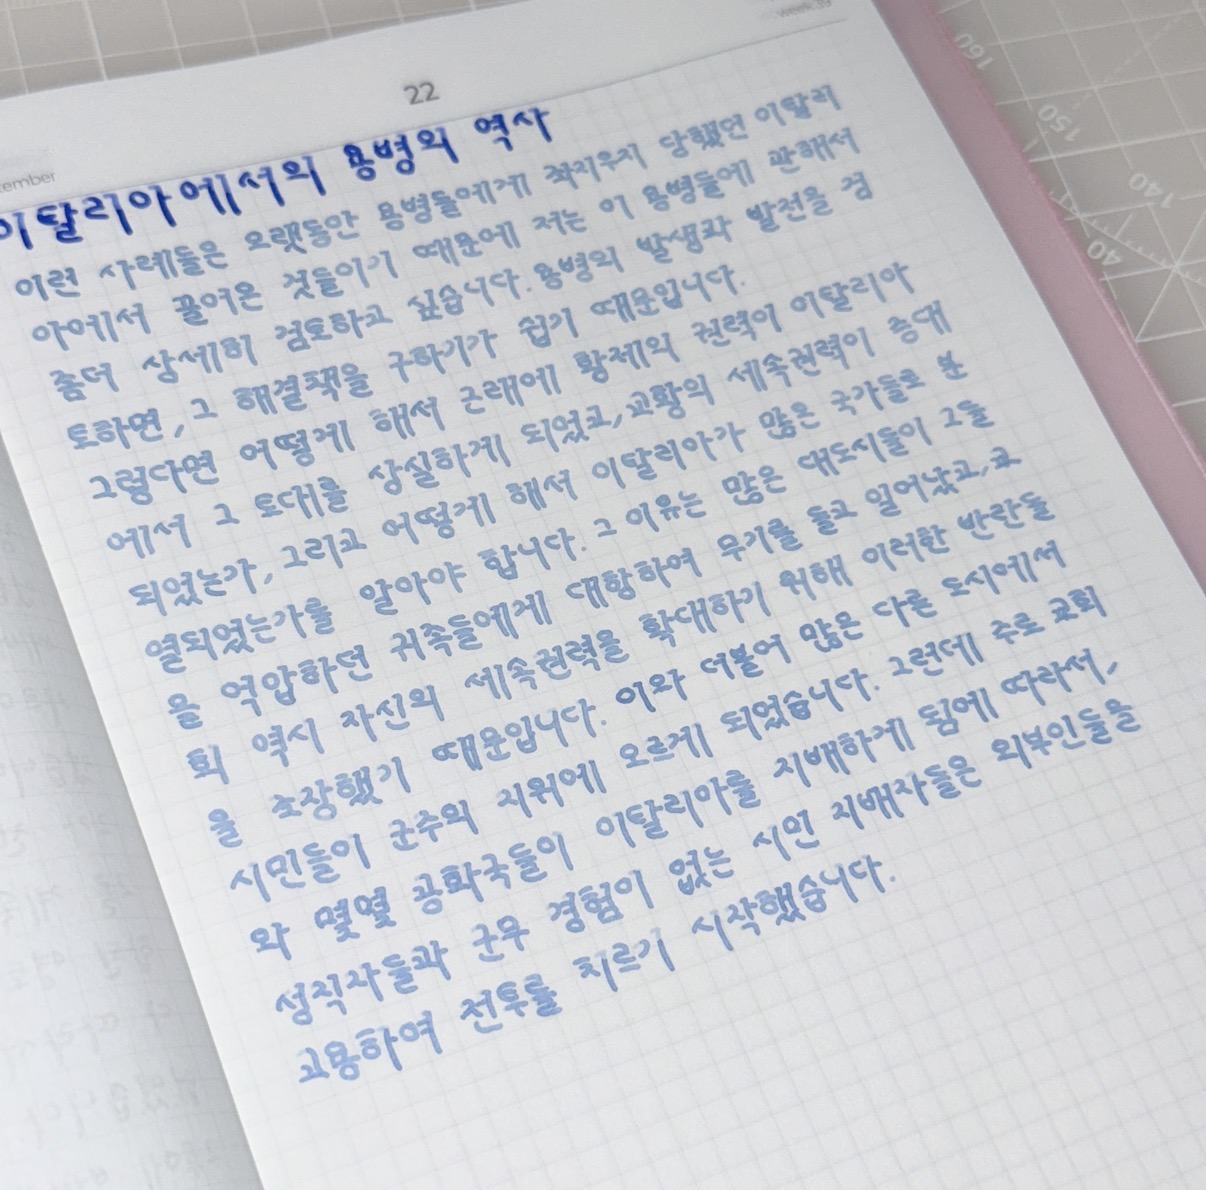 week 39
22
tember
이탈리아에서의 용병의 역사
이런 사례들은 오랫동안 용병들에게 좌지우지 당했던 이탈리
아에서 끌어온 것들이기 때문에 저는 이 용병들에 관해서
좀더 상세히 검토하고 싶습니다. 용병의 발생과 발전을 검
토하면, 그 해결책을 구하기가 쉽기 때문입니다.
그렇다면 어떻게 해서 근래에 황제의 권력이 이탈리아
에서 그 토대를 상실하게 되었고, 교황의 세속권력이 증대
되었는가, 그리고 어떻게 해서 이탈리아가 많은 국가들로 분
열되었는가를 알아야 합니다. 그 이유는 많은 대도시들이 그들
을 억압하던 귀족들에게 대항하여 무기를 들고 일어났고, 교
회 역시 자신의 세속권력을 확대하기 위해 이러한 반란들
을 조장했기 때문입니다. 이와 더불어 많은 다른 도시에서
시민들이 군주의 지위에 오르게 되었습니다. 그런데 주로 교회
와 몇몇 공화국들이 이탈리아를 지배하게 됨에 따라서,
성직자들과 군무 경험이 없는 시민 지배자들은 외부인들을
고용하여 전투를 치르기 시작했습니다.
160
150
140
40